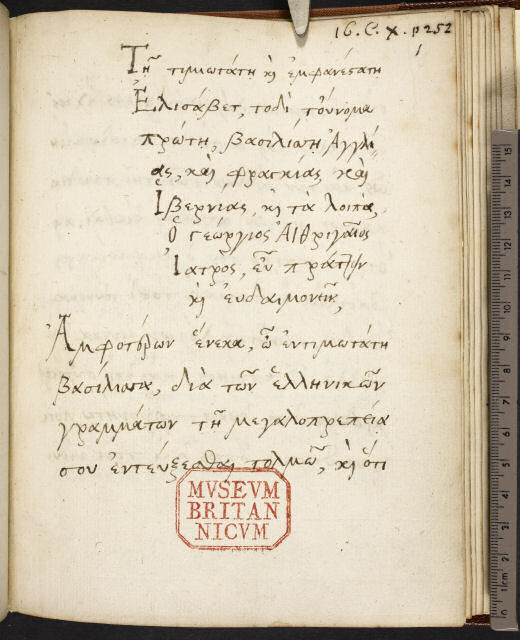 16. C. X. p 252
1
Τῇ τιμιωτάτῃ κὶ ἐμφανέςατῃ
Ἐλισάβετ, τοδὶ τοὔνομα
πρώτῃ, βασιλίσσῃ Ἀγγλί-
ας, καὶ φραγκίας καὶ
Ἰβερνίας, κὶ τὰ λοιπα,
ὁ Γεώργιος
Ἰατρὸς, εὖ πράττειν
κὶ εὐδαιμονεῖν,
Ἀμφοτέρων ἕνεκα, ὦ ἐντιμωτάτη
βασίλισσα, διὰ τῶν ἑλληνικῶν
γραμμάτων τῇ μεγαλοπρεπείᾳ
σου ἐντεύξεσθαι τολμῶ, κὶ ὅτι
MVSEVM
BRITAN
NICVM